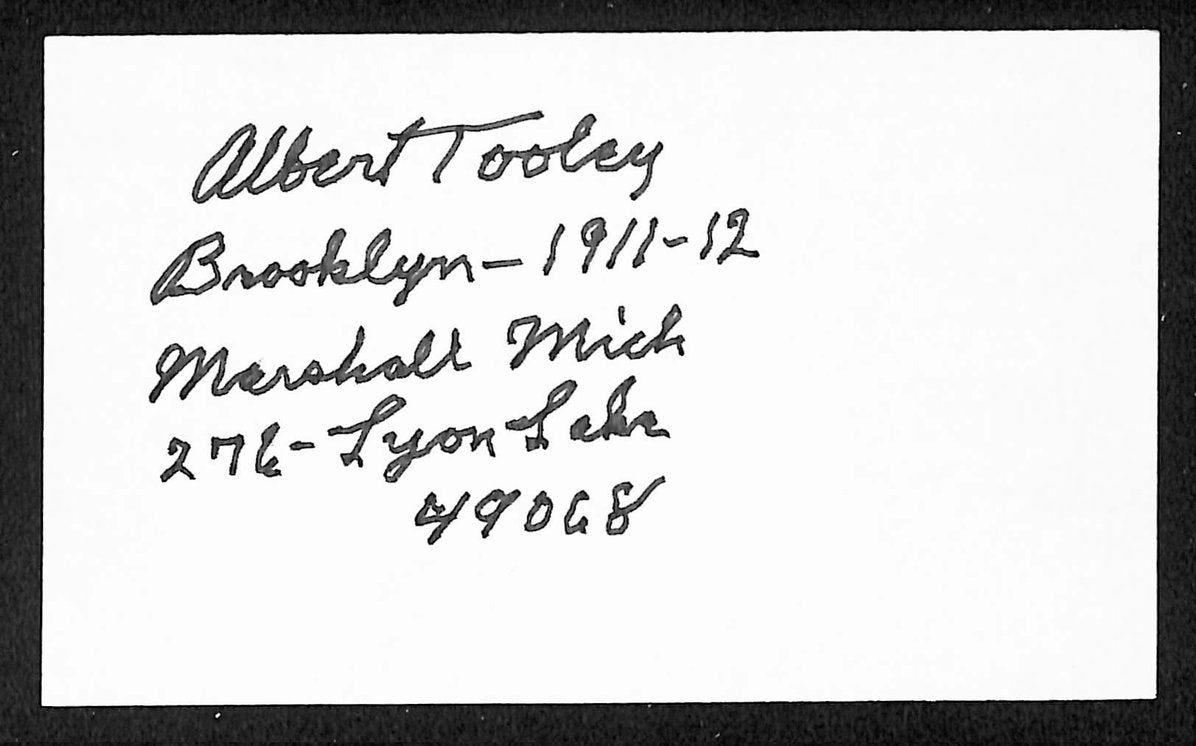 Albert Tooley
Brooklyn - 1911-12
Marshall Mich
276 - Lyon Lake
49068